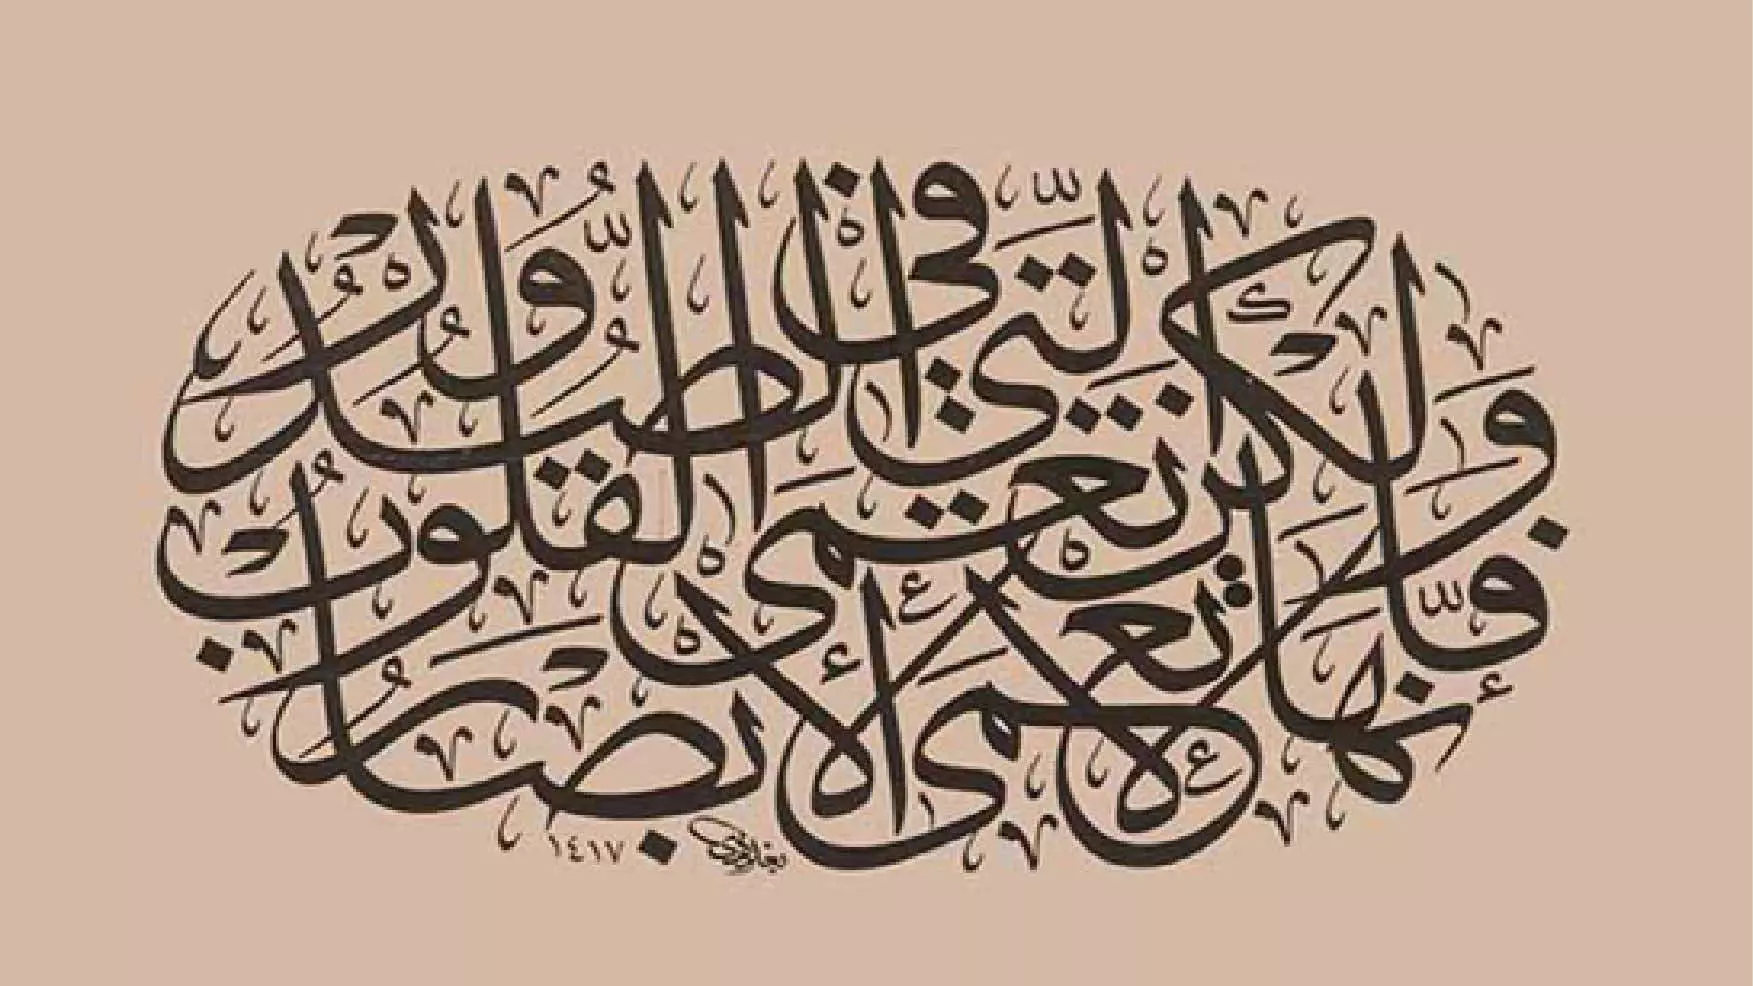 فَإِنَّهَا لَا تَعْمَى الْأَبْصَارُ
وَلَٰكِنْ تَعْمَى الْقُلُوبُ
الَّتِي فِي الصُّدُورِ
١٤١٧